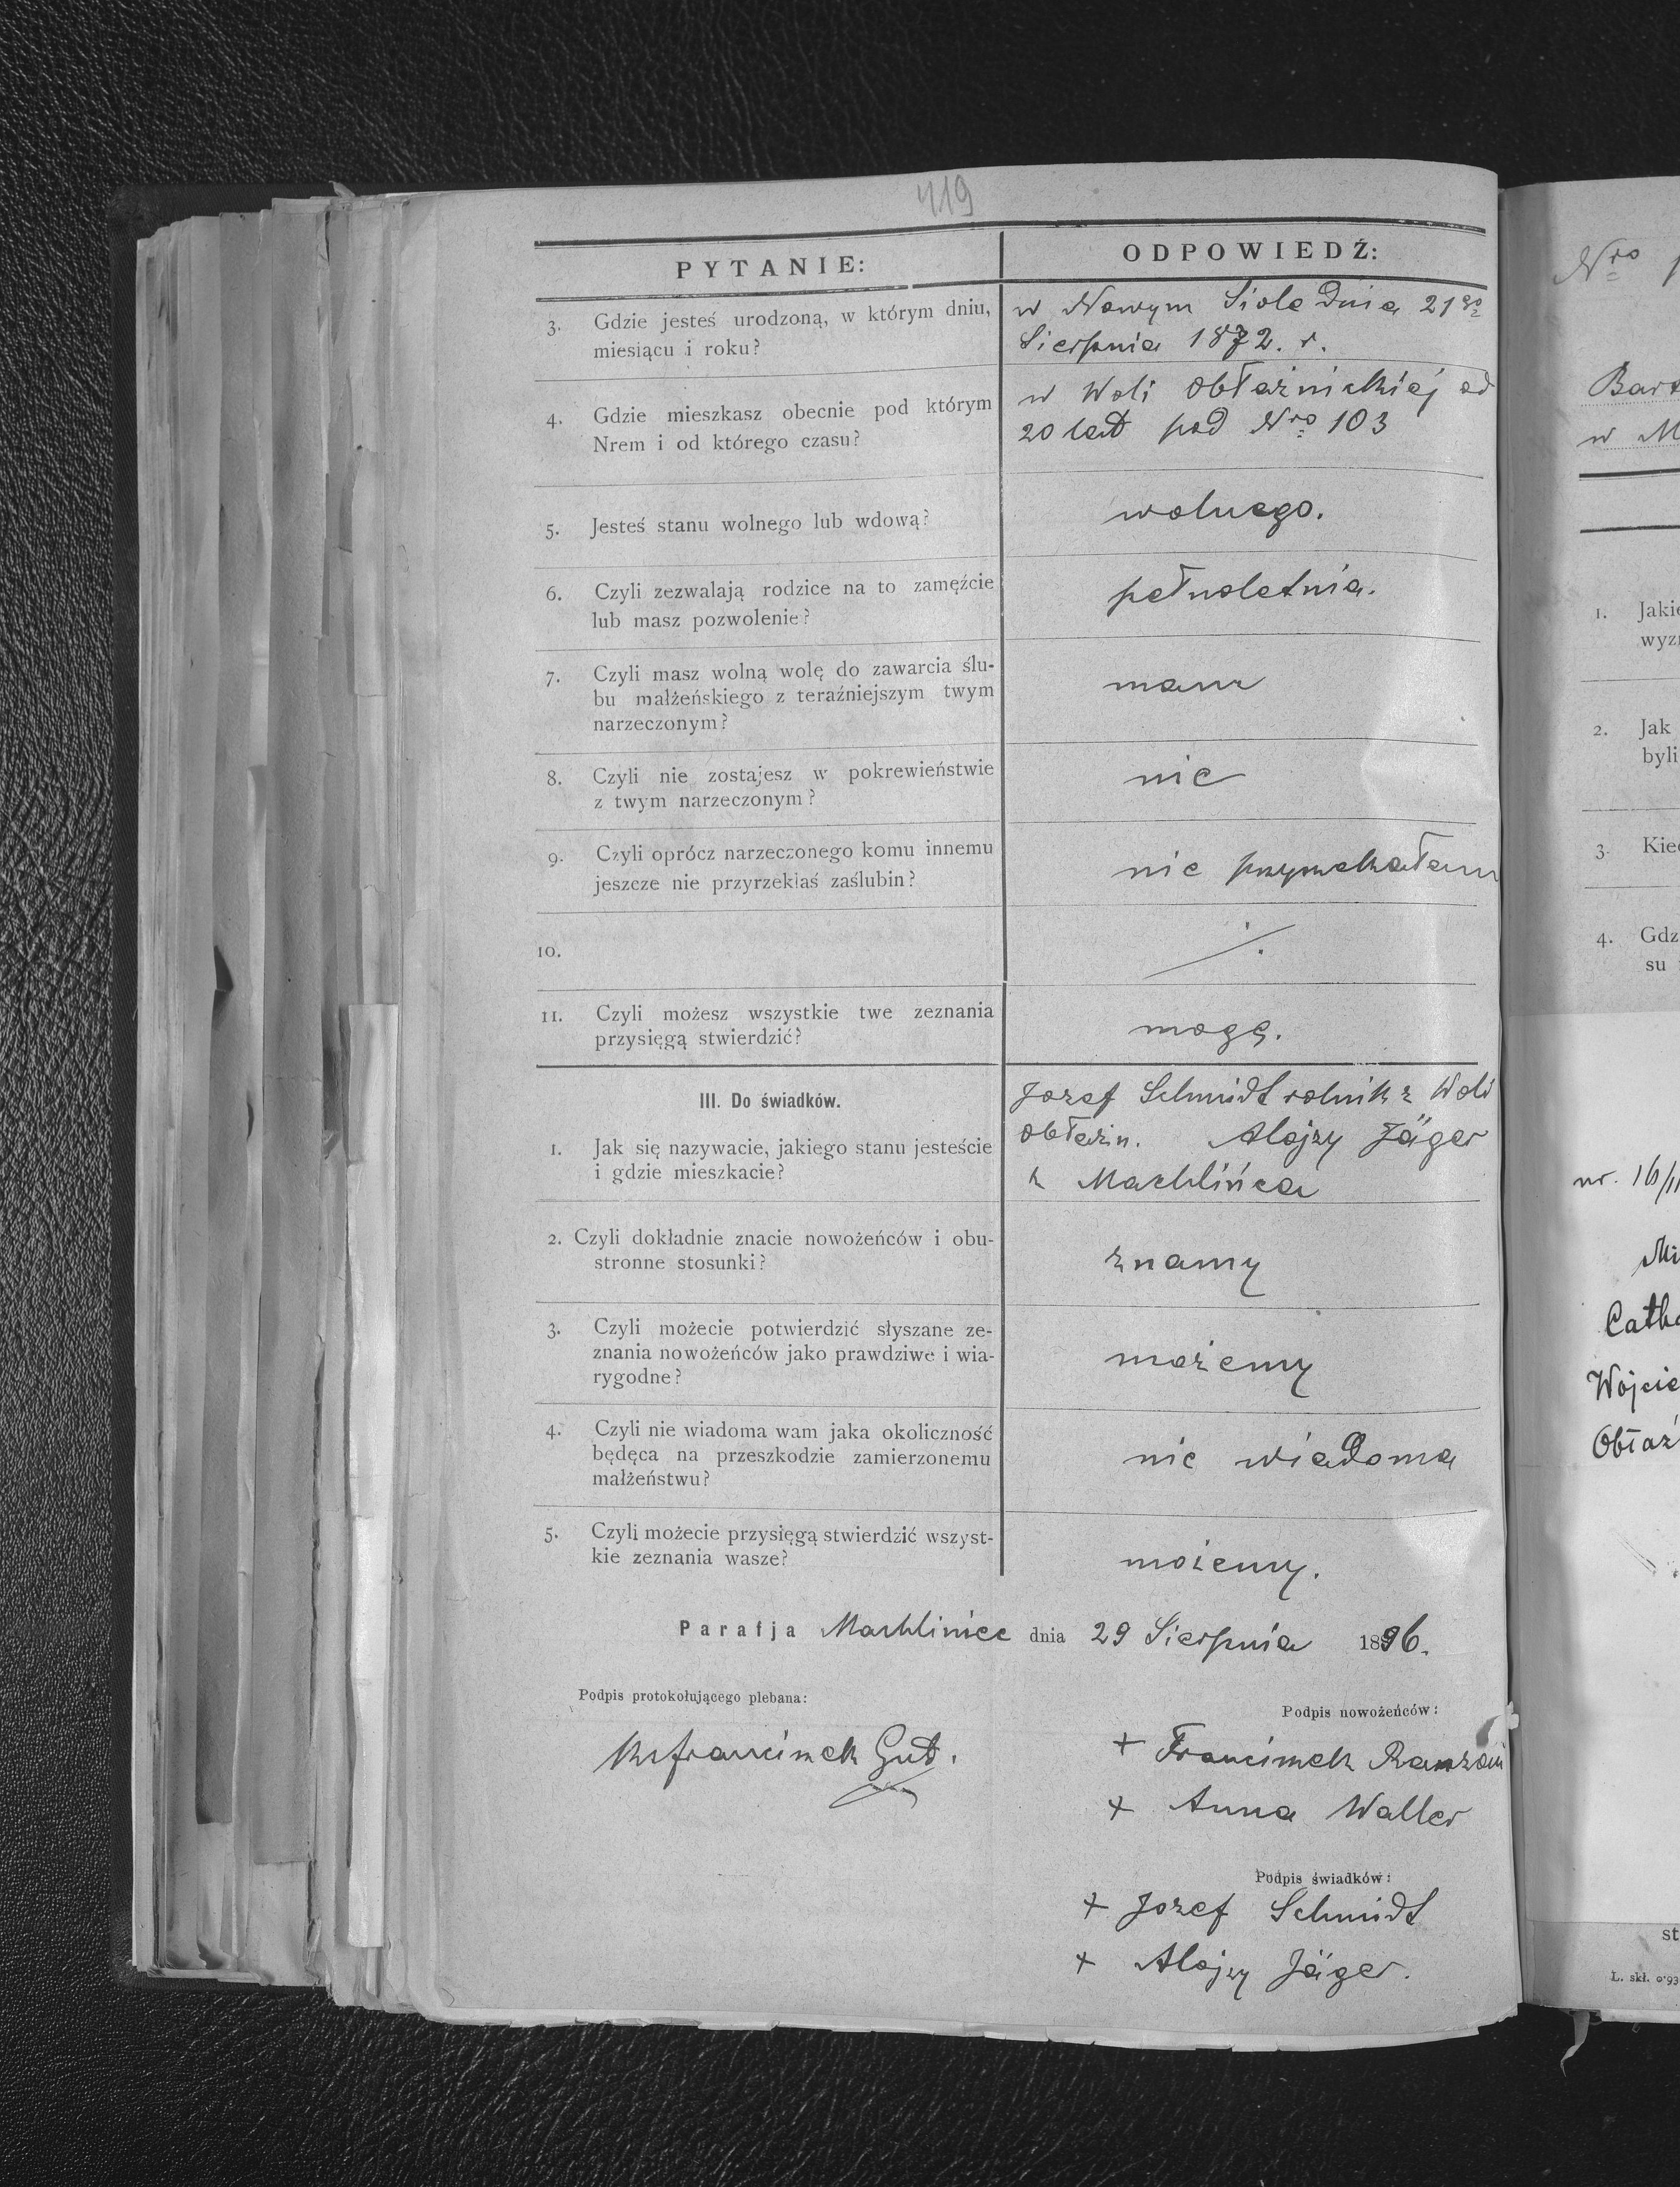 419
PYTANIE:
ODPOWIEDŹ:
3. Gdzie jesteś urodzoną, w którym dniu,
miesiącu i roku?
w Nowym Siole dnia 21go
Sierpnia 1872. r.
4. Gdzie mieszkasz obecnie pod którym
Nrem i od którego czasu?
w Woli Obłaźnickiej od
20 lat pod Nro 103
5. Jesteś stanu wolnego lub wdową?
wolnego.
6. Czyli zezwalają rodzice na to zamęźcie
lub masz pozwolenie?
pełnoletnia.
7. Czyli masz wolną wolę do zawarcia ślu-
bu małżeńskiego z teraźniejszym twym
narzeczonym?
mam
8. Czyli nie zostajesz w pokrewieństwie
z twym narzeczonym?
nie
9. Czyli oprócz narzeczonego komu innemu
jeszcze nie przyrzekłaś zaślubin?
nie przyrzekałam
10.
11. Czyli możesz wszystkie twe zeznania
przysięgą stwierdzić?
mogę.
III. Do świadków.
1. Jak się nazywacie, jakiego stanu jesteście
i gdzie mieszkacie?
Jozef Schmidt rolnik z Woli
Obłaźn. Alojzy Jäger
z Machlińca
2. Czyli dokładnie znacie nowożeńców i obu-
stronne stosunki?
znamy
3. Czyli możecie potwierdzić słyszane ze-
znania nowożeńców jako prawdziwe i wia-
rygodne?
możemy
4. Czyli nie wiadoma wam jaka okoliczność
będęca na przeszkodzie zamierzonemu
małżeństwu?
nie wiadoma
5. Czyli możecie przysięgą stwierdzić wszyst-
kie zeznania wasze?
możemy.
Parafja Machliniec dnia 29 Sierpnia 1896.
Podpis protokołującego plebana:
Podpis nowożeńców:
Ks Franciszek Gut.
+ Franciszek
+ Anna Waller
Podpis świadków:
+ Jozef Schmidt
+ Alojzy Jäger.
Nro
w M
1. Jakie
2. Jak
byli
3.
4.
su
nr.
Wojcie
Obłaź
st
L. skł.